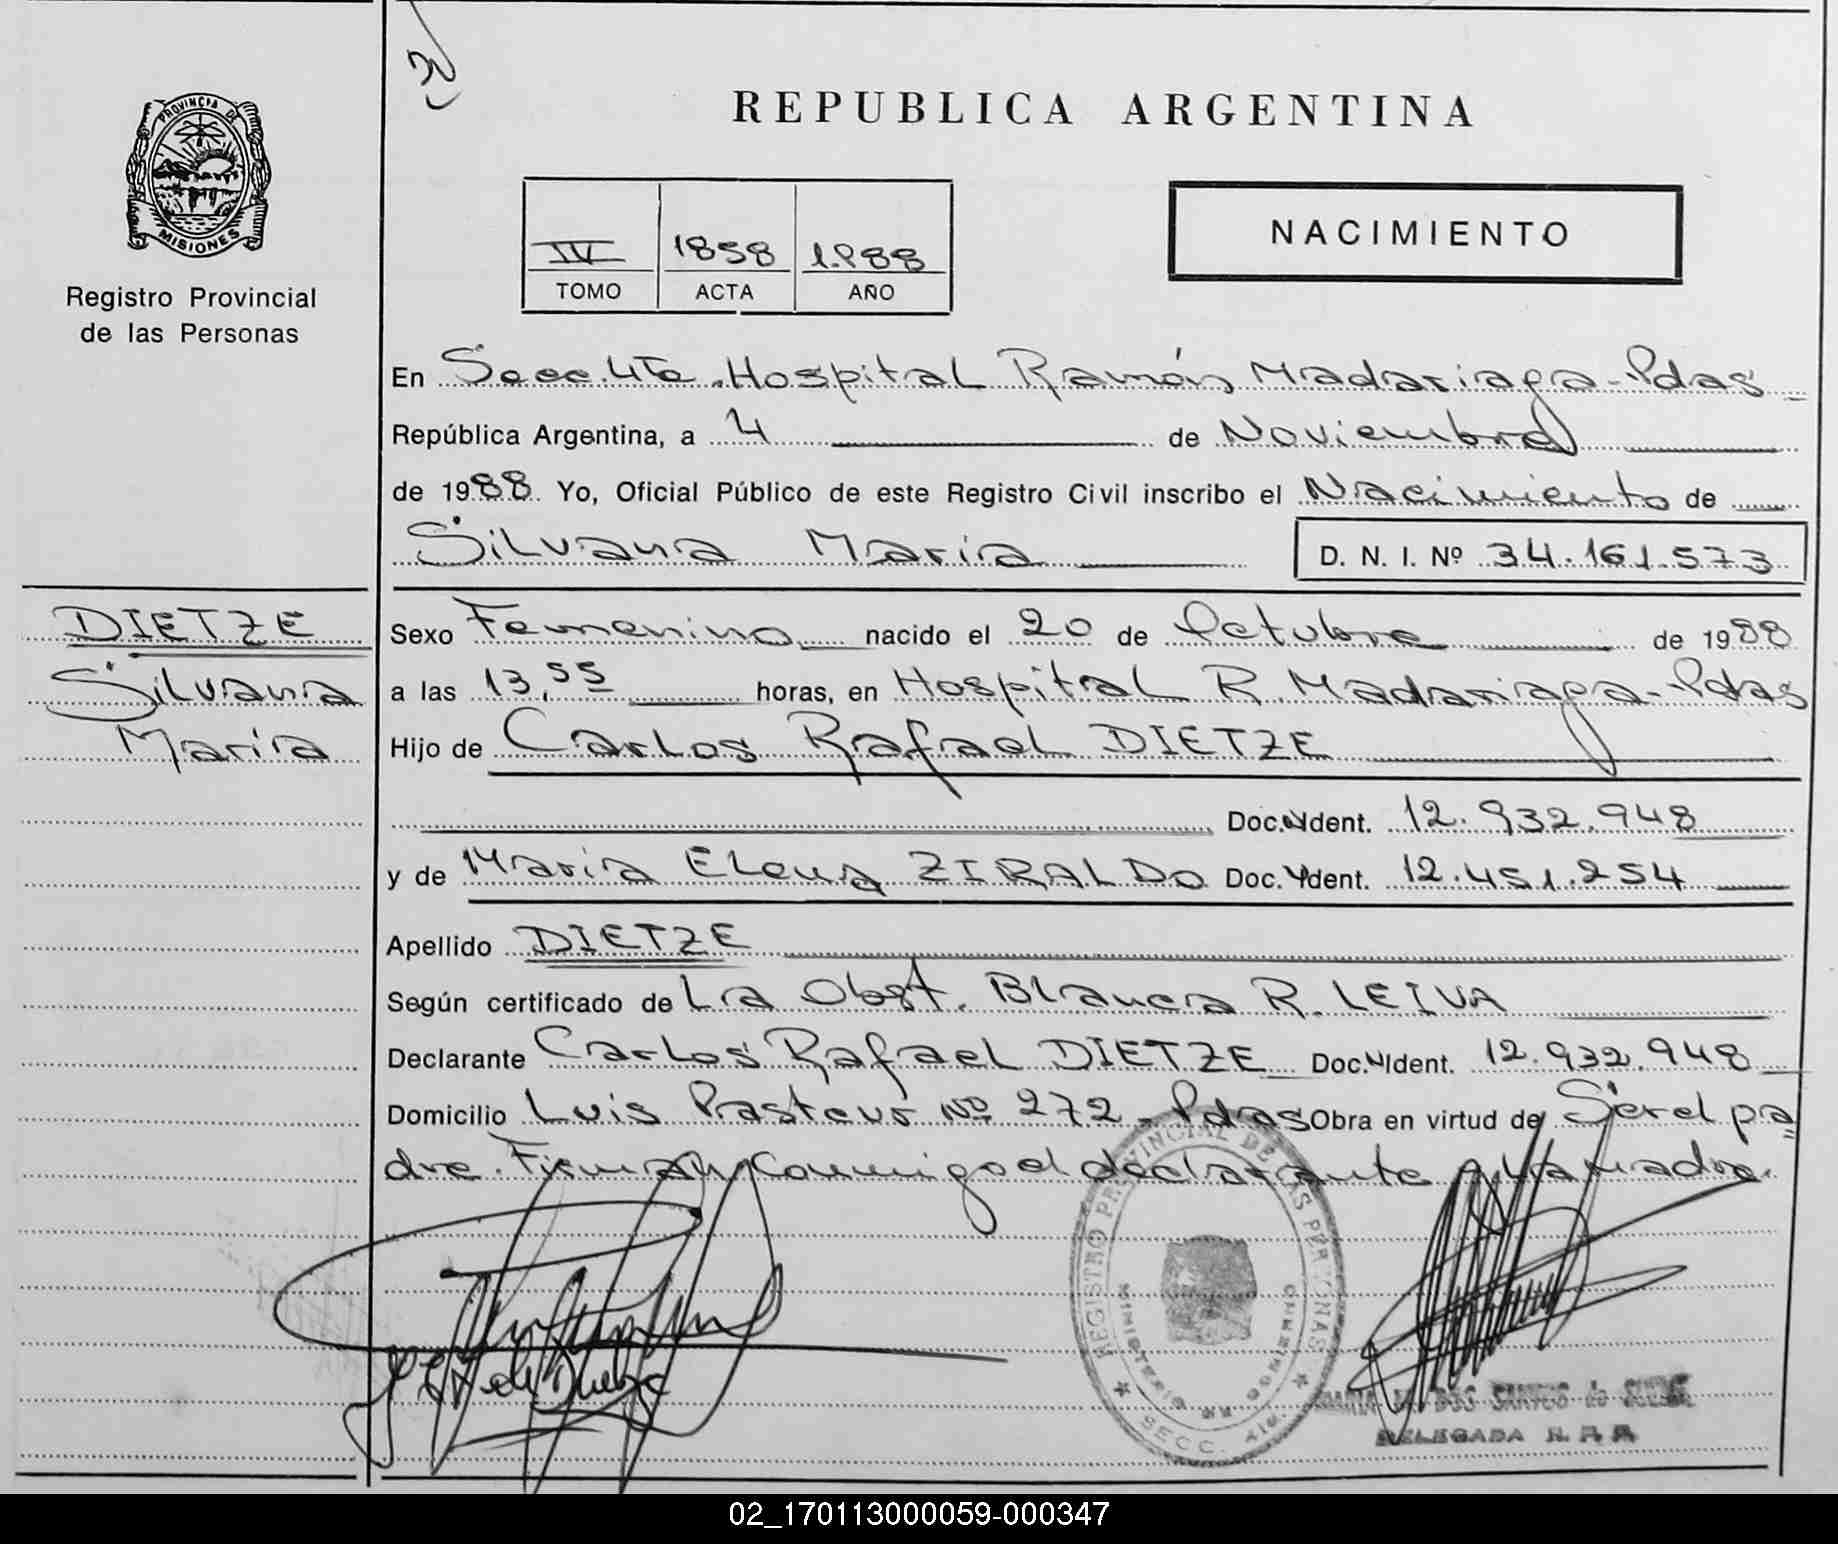 REPUBLICA ARGENTINA
PROVINCIA DE
MISIONES
Registro Provincial
de las Personas
NACIMIENTO
IV 1858 1.988
TOMO ACTA AÑO
En Secc. 4Ta. Hospital Ramón Madariaga - Pdas
República Argentina, a 4 de Noviembre
de 1988. Yo, Oficial Público de este Registro Civil inscribo el Nacimiento de
Silvana María D. N. I. Nº 34.161.573
DIETZE
Silvana
María
Sexo Femenino nacido el 20 de Octubre de 1988
a las 13,55 horas, en Hospital R. Madariaga - Pdas
Hijo de Carlos Rafael DIETZE
Doc. Ident. 12.932.948
y de María Elena ZIRALDO Doc. Ident. 12.451.254
Apellido DIETZE
Según certificado de La Obst. Blanca R. LEIVA
Declarante Carlos Rafael DIETZE Doc. Ident. 12.932.948
Domicilio Luis Pasteur Nº 272 - Pdas Obra en virtud de Ser el pa
dre. Firman conmigo el declarante y la madre.
REGISTRO PROVINCIAL DE LAS PERSONAS
MINISTERIO DE GOBIERNO
SECC. 4ta.
DELEGADA R. P. P.
02_170113000059-000347